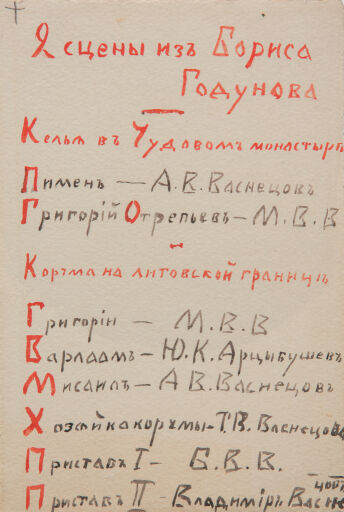 2 сцены изъ Бориса
Годунова
Келья въ Чудовомъ монастырѣ
Пименъ — А.В. Васнецовъ
Григорій Отрепьевъ — М.В.В
Корчма на литовской границѣ
Григорій — М.В.В
Варлаамъ — Ю.К. Арцыбушевъ
Мисаилъ — А В. Васнецовъ
Хозяйка корчмы — Т.В. Васнецова
Приставъ I — Б.В.В.
Приставъ II — Владиміръ Васнецовъ